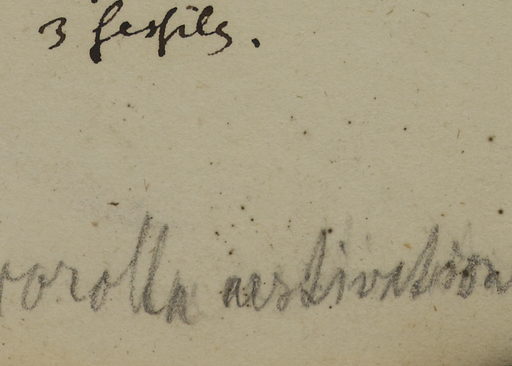 3 sessilis.
corolla aestivation